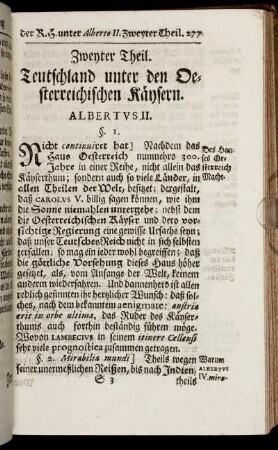 der R.H. unter Alberto II. Zweyter Theil. 277
Zweyter Theil.
Teutschland unter den Oe-
sterreichischen Käysern.
ALBERTVS II.
§. 1.
Nicht continuiret hat] Nachdem das
Haus Oesterreich nunmehro 300.
Jahre in einer Reihe, nicht allein das
Käyserthum; sondern auch so viele Länder, in
allen Theilen der Welt, besitzet; dergestalt,
daß CAROLUS V. billig sagen können, wie ihm
die Sonne niemahlen untergehe; nebst dem
die Oesterreichischen Käyser und dero vor-
sichtige Regierung eine gewisse Ursache seyn;
daß unser Teutsches Reich nicht in sich selbsten
zerfallen; so mag ein jeder wohl begreiffen; daß
die göttliche Vorsehung dieses Haus höher
gesetzt, als, vom Anfange der Welt, keinem
andern wiederfahren. Und dannenhero ist aller
redlich gesinnten ihr hertzlicher Wunsch: daß sol-
ches, nach dem bekannten ænigmate: austria
erit in orbe ultima, das Ruder des Käyser-
thums auch forthin beständig führen möge.
Wovon LAMBECIUS in seinem itinere Cellensi
sehr viele prognostica zusammen getragen.
§. 2. Mirabilia mundi] Theils wegen
seiner unermeßlichen Reißen, bis nach Indien,
S 3 theils
Des Hau-
ses Oe-
sterreich
Macht.
Warum
ALBERTVS
IV. mira-